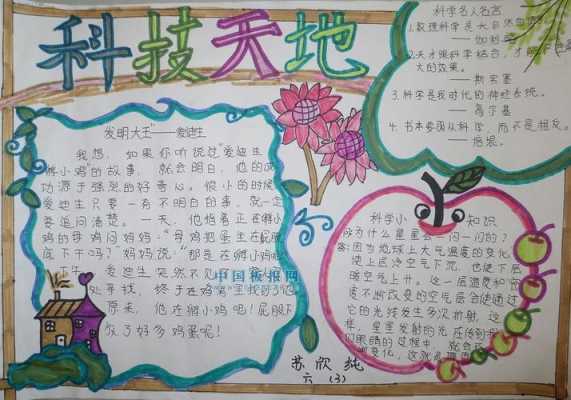 科技天地
科学名人名言
1.数理科学是大自
——伽利
2.天才跟科学结合，才
大的效果。
——斯宾塞
3.科学是我时代的神经系统。
——高尔基
4.书本要跟从科学，而不是相反。
——培根。
发明大王"——爱迪生
我想，如果你听说过"爱迪生
孵小鸡"的故事，就会明白，他的成
功源于强烈的好奇心。很小的时候
爱迪生只要一有不明白的事，就一定
要追问清楚。一天，他指着正在孵小
鸡的母鸡问妈妈："母鸡把蛋坐在屁股
底下干吗？"妈妈说："那是在孵小鸡呢
午，爱迪生突然不见了，
处寻找，终于在鸡窝里找到了他
原来，他在孵小鸡呢！屁股下
放了好多鸡蛋呢！
中国板报网
科学小知识
为什么星星会一闪一闪的？
答：因为地球上大气温度的变化，
使上层冷空气下沉，也使下层
暖空气上升。这一层温度和密
度不断改变的空气层会使通过
它的光线发生多次折射，这
样，星星发射的光在传到
们眼睛的过程中，就会
变化，这就
苏欣纯
六（3）